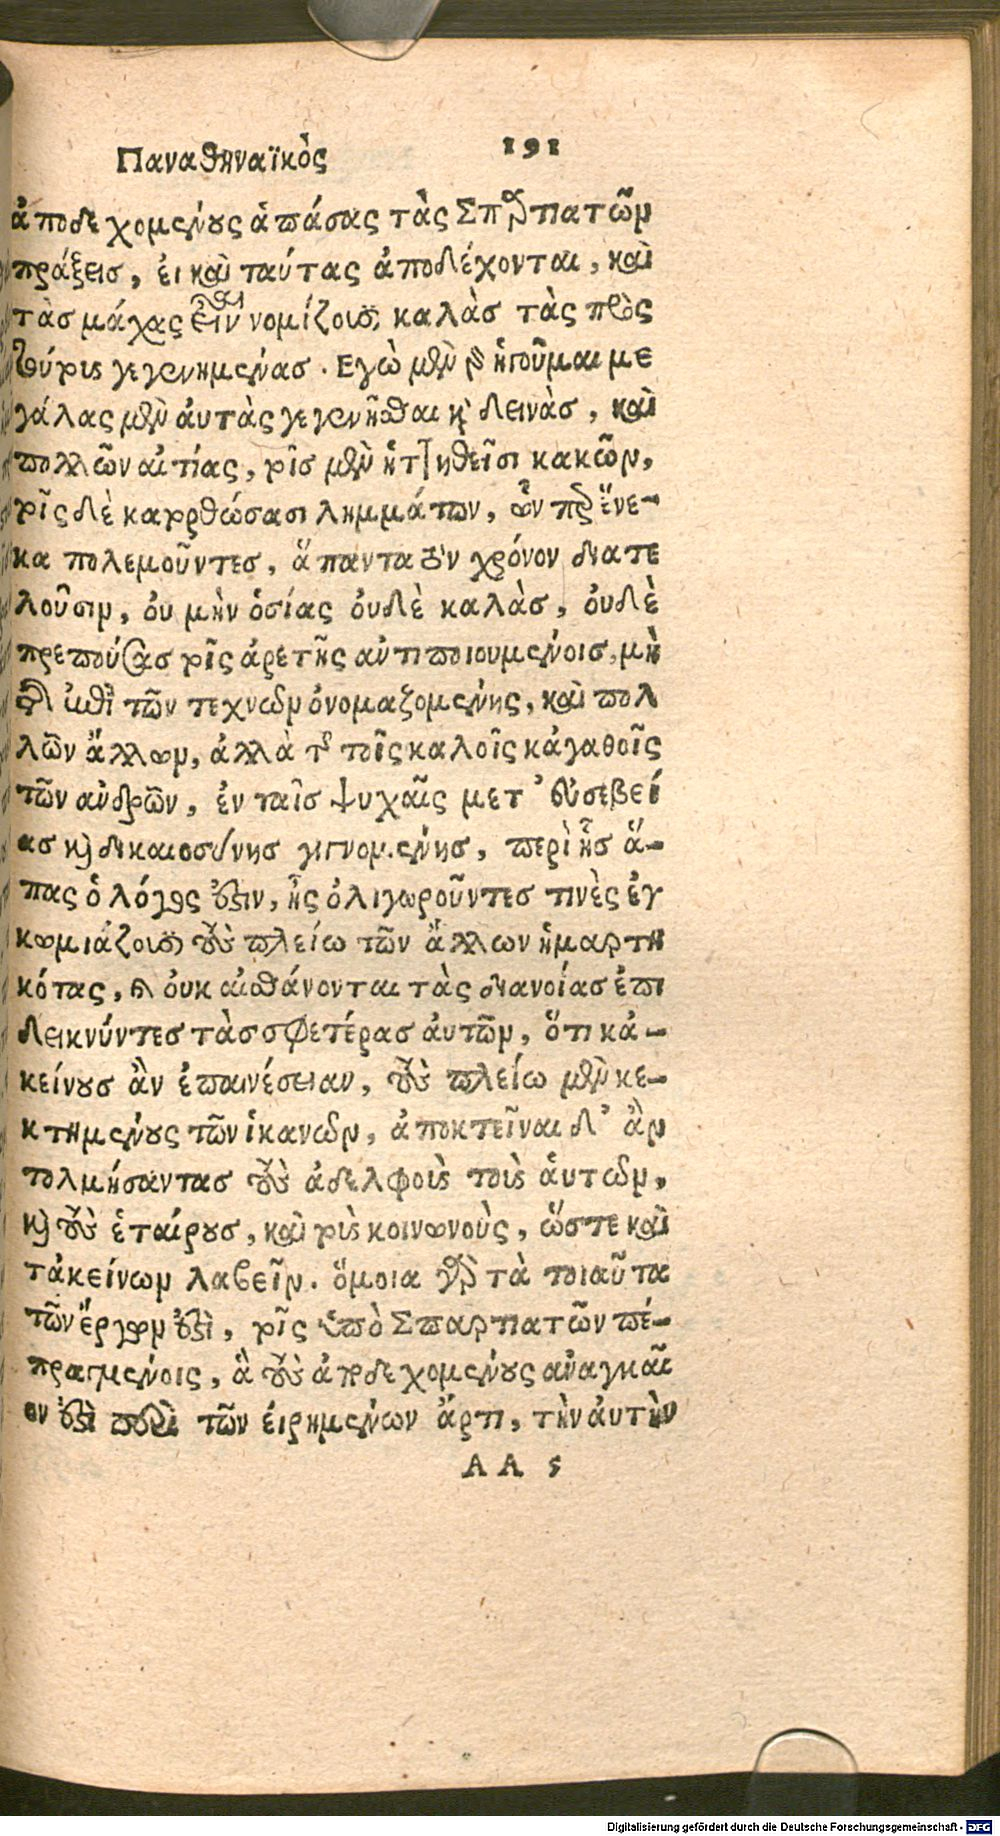 Παναθηναϊκὸς 191
ἀποδεχομένους ἁπάσας τὰς Σπαρτιατῶν
πράξεις, εἰ καὶ ταύτας ἀποδέχονται, καὶ
τὰς μάχας εἶναι νομίζουσι καλὰς τὰς πρὸς
τούτοις γεγενημένας. Εγὼ μὲν γὰρ ἡγοῦμαι με
γάλας μὲν ἀυτὰς γεγενῆσθαι καὶ δεινὰς, καὶ
πολλῶν αἰτίας, τοῖς μὲν ἡττηθεῖσι κακῶν,
τοῖς δὲ κατορθώσασι λημμάτων, ὧν περ ἕνε-
κα πολεμοῦντες, ἅπαντα τὸν χρόνον διατε
λοῦσιν, ὀυ μὴν ὁσίας ὀυδὲ καλὰς, ὀυδὲ
πρεπούσας τοῖς ἀρετῆς ἀντιποιουμένοις, μὴ
τῆς ἐπὶ τῶν τεχνῶν ὀνομαζομένης, καὶ πολ
λῶν ἄλλων, ἀλλὰ τῆς τοῖς καλοῖς κἀγαθοῖς
τῶν ἀνδρῶν, ἐν ταῖς ψυχαῖς μετ' ἐυσεβεί
ας καὶ δικαιοσύνης γιγνομένης, περὶ ἧς ἅ-
πας ὁ λόγος ἐστιν, ἧς ὀλιγωροῦντες τινὲς ἐγ
κωμιάζουσι τοὺς πλείω τῶν ἄλλων ἡμαρτη
κότας, καὶ ὀυκ αἰσθάνονται τὰς διανοίας ἐπι
δεικνύντες τὰς σφετέρας ἀυτῶν, ὅτι κἀ-
κείνους ἂν ἐπαινέσειαν, τοὺς πλείω μὲν κε-
κτημένους τῶν ἱκανῶν, ἀποκτεῖναι δ' ἂν
τολμήσαντας τοὺς ἀδελφοὺς τοὺς ἁυτῶν,
καὶ τοὺς ἑταίρους, καὶ τοὺς κοινωνοὺς, ὥστε καὶ
τἀκείνων λαβεῖν. ὅμοια γὰρ τὰ τοιαῦτα
τῶν ἔργων ἐστὶ, τοῖς ὑπὸ Σπαρτιατῶν πέ-
πραγμένοις, ἃ τοὺς ἀποδεχομένους ἀναγκαῖ
ον ἐστὶ περὶ τῶν ἐιρημένων ἄρτι, τὴν ἀυτὴν
AA 5
Digitalisierung gefördert durch die Deutsche Forschungsgemeinschaft - DFG